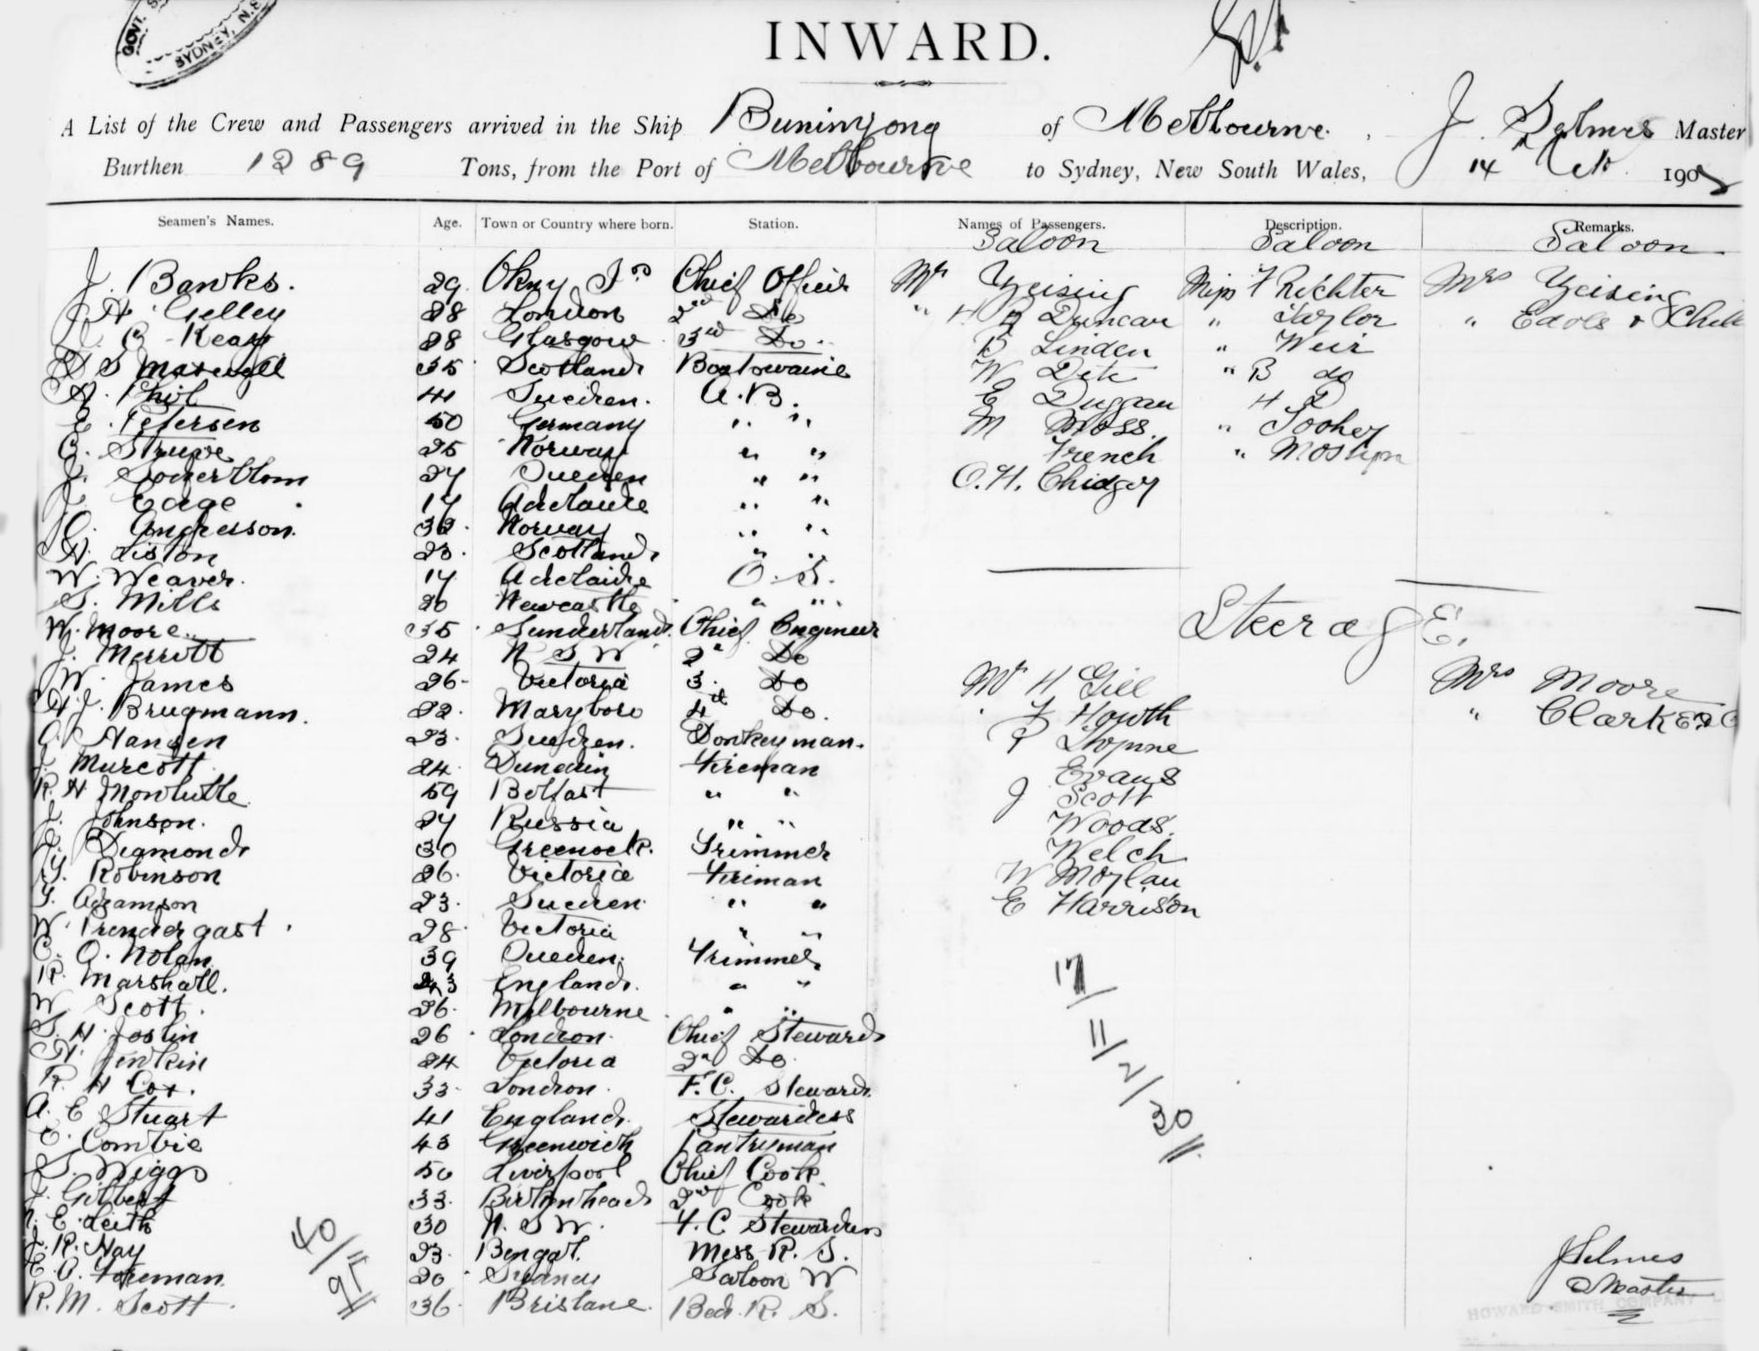 GOVT. S
SYDNEY, N.S.
INWARD.
A List of the Crew and Passengers arrived in the Ship Buninyong of Melbourne, J. Selmes Master
Burthen 1289 Tons, from the Port of Melbourne to Sydney, New South Wales, 14 190
Seamen's Names. Age. Town or Country where born. Station. Names of Passengers. Description. Remarks.
Saloon Saloon Saloon
J. Banks. 29 Chief Officer Mr Yeising Miss F Richter Mrs Yeising
Gelley 28 London 2nd Do " H B Duncan " Taylor " Edols & Child
Keay 28 Glasgow 3rd Do. B Linden " Weir
D S Maxwell 35 Scotland Boatswaine W Dite " B do
41 Sweden. A.B. E Duggan
E. Petersen 50 Germany " " M Moss. " Toohey
C. Struve 25 Norway " " French " Mostyn
J. Soderblom 27 Sweden " " C.H. Chidgey
J. Edge 17 Adelaide " "
Andresson. 33 Norway " "
Liston 23. Scotland " "
W. Weaver. 17 Adelaide O. S.
S. Mills 20 Newcastle " "
W. Moore. 35 Sunderland. Chief Engineer SteeragE.
J. Marrott 24 N S W 2nd Do
W. James 26 Victoria 3. Do Mr H Gill Mrs Moore
H.J. Brugmann. 22. Maryboro 4th Do. " F Howth " Clark
Hansen 23. Sweden. Donkeyman. P
J. Murcott 24 Dunedin Fireman Evans
R. H 59 Belfast " " J Scott
J. Johnson. 27 Russia " " Woods.
Diamond 30 Greenock. Trimmer Welch
Robinson 26. Victoria Fireman W Moylan
Adamson 23. Sweden " " E Harrison
W. Prendergast. 28 Victoria " "
C. A. Nolan 39 Queen. Trimmer 17/
R. Marshall. 23 England. " "
W Scott. 26. Melbourne " "
S. H. Joslin 26 London. Chief Steward 11/
Jenkin 24 Victoria 2nd Do
R H Cox. 33. London. F.C. Steward 2/
A. E Stuart 41 England. Stewardess 30
C. Combie 43 Greenwich Pantryman
S. Wiggs 50 Liverpool Chief Cook
J. Gilbert 33. Birkenhead 2nd Cook
E. Leith 30 N. S W. F. C Stewardess
J. R. Hay 23. Bengal. Mess R. S. J Selmes
Foreman 20 Saloon W Master
R. M. Scott 36 Brisbane. Bed. R. S.
40/
95
HOWARD SMITH COMPANY